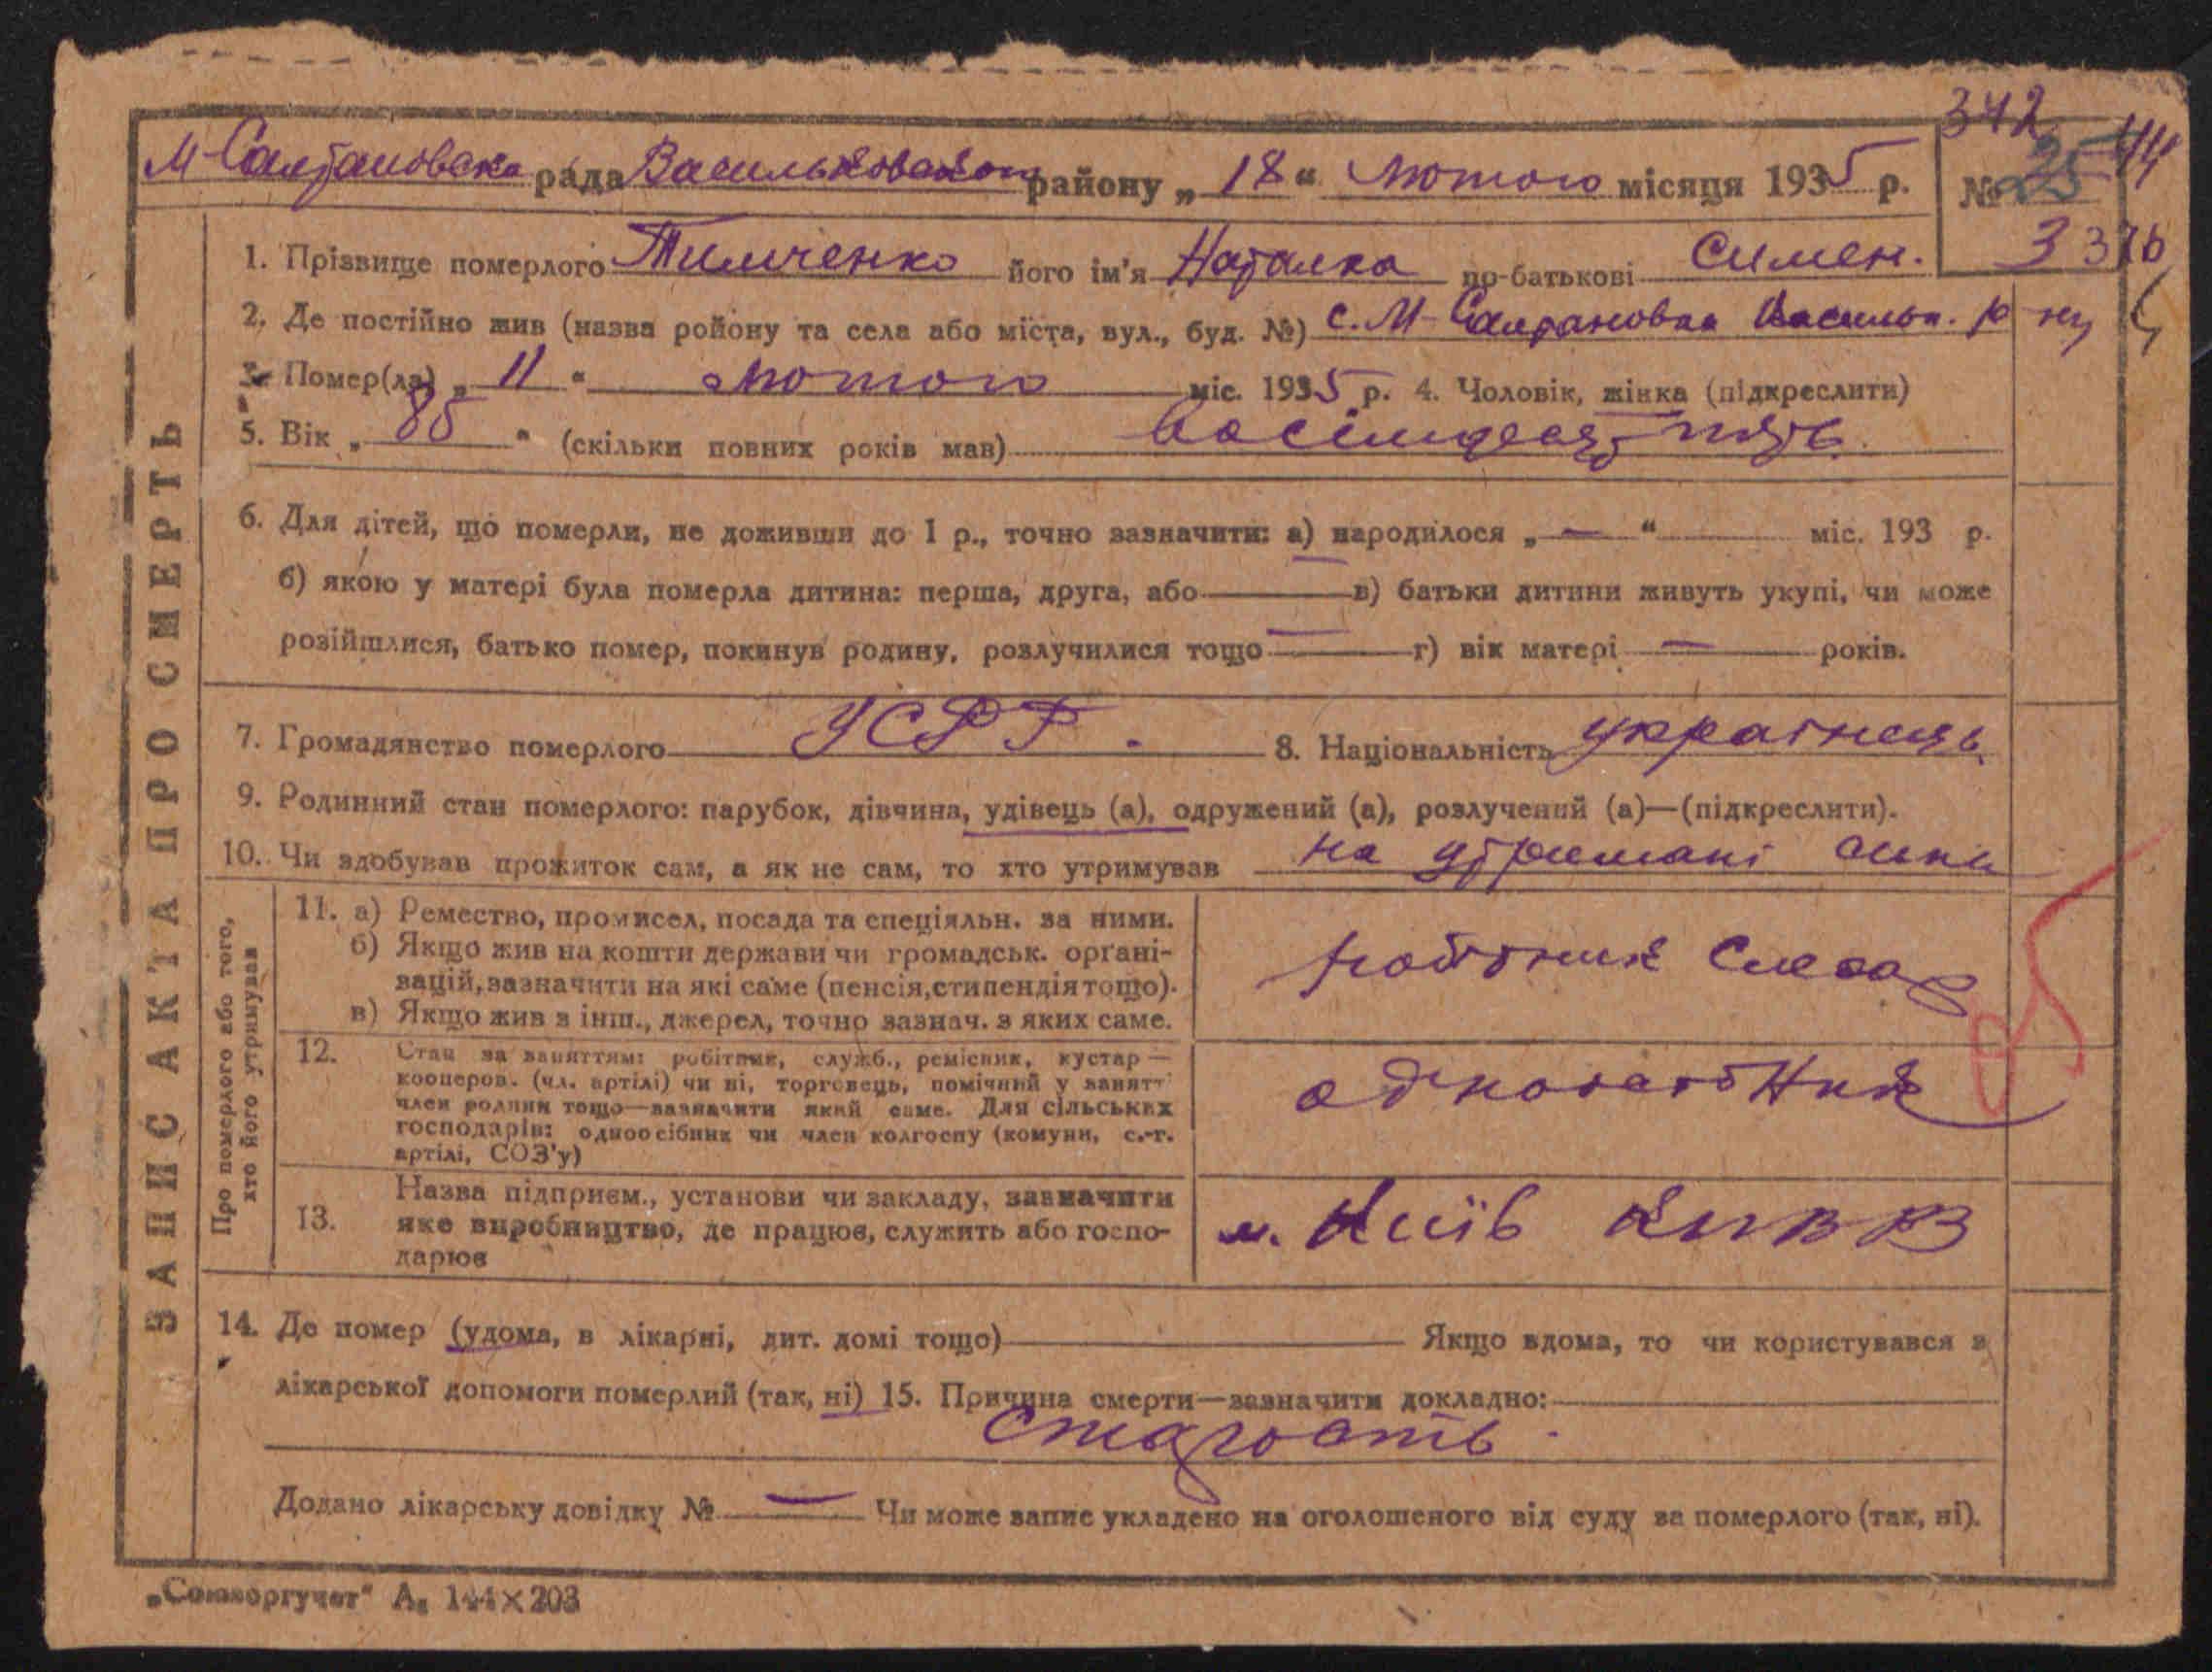 342
М-Салтановска рада Васильковского району „ 18 “ лютого місяця 1935 р. № 25 44
3 376
1. Прізвище померлого Тимченко його ім'я Наталка по-батькові Симен.
2. Де постійно жив (назва ройону та села або міста, вул., буд. №) с. М-Салтановка Васильк. р-ну
3. Помер(ла) „ 11 “ лютого міс. 1935 р. 4. Чоловік, жінка (підкреслити)
5. Вік „ 85 “ (скільки повних років мав) восімдесят пять
6. Для дітей, що померли, не доживши до 1 р., точно зазначити: а) народилося „ — “ міс. 193 р.
б) якою у матері була померла дитина: перша, друга, або — в) батьки дитини живуть укупі, чи може
розійшлися, батько помер, покинув родину, розлучилися тощо — г) вік матері — років.
7. Громадянство померлого УСРР. 8. Національність українець
9. Родинний стан померлого: парубок, дівчина, удівець (а), одружений (а), розлучений (а)—(підкреслити).
10. Чи здобував прожиток сам, а як не сам, то хто утримував на утримані сина
ЗАПИС АКТА ПРО СМЕРТЬ
Про померлого або того,
хто його утримував
11. а) Ремество, промисел, посада та спеціяльн. за ними.
б) Якщо жив на кошти держави чи громадськ. органі-
зацій, зазначити на які саме (пенсія, стипендія тощо).
в) Якщо жив з інш., джерел, точно зазнач. з яких саме.
робітник Слесар
12. Стан за заняттям: робітник, служб., ремісник, кустар —
кооперов. (чл. артілі) чи ні, торговець, помічний у занятт
член родини тощо—зазначити який саме. Для сільських
господарів: одноосібник чи член колгоспу (комуни, с.-г.
артілі, СОЗ'у)
13. Назва підприєм., установи чи закладу, зазначити
яке виробництво, де працює, служить або госпо-
дарює
м. Київ
14. Де помер (удома, в лікарні, дит. домі тощо) Якщо вдома, то чи користувався з
лікарської допомоги померлий (так, ні) 15. Причина смерти—зазначити докладно:
старость.
Додано лікарську довідку № — Чи може запис укладено на оголошеного від суду за померлого (так, ні).
„Союзоргучет“ А₅ 144×203